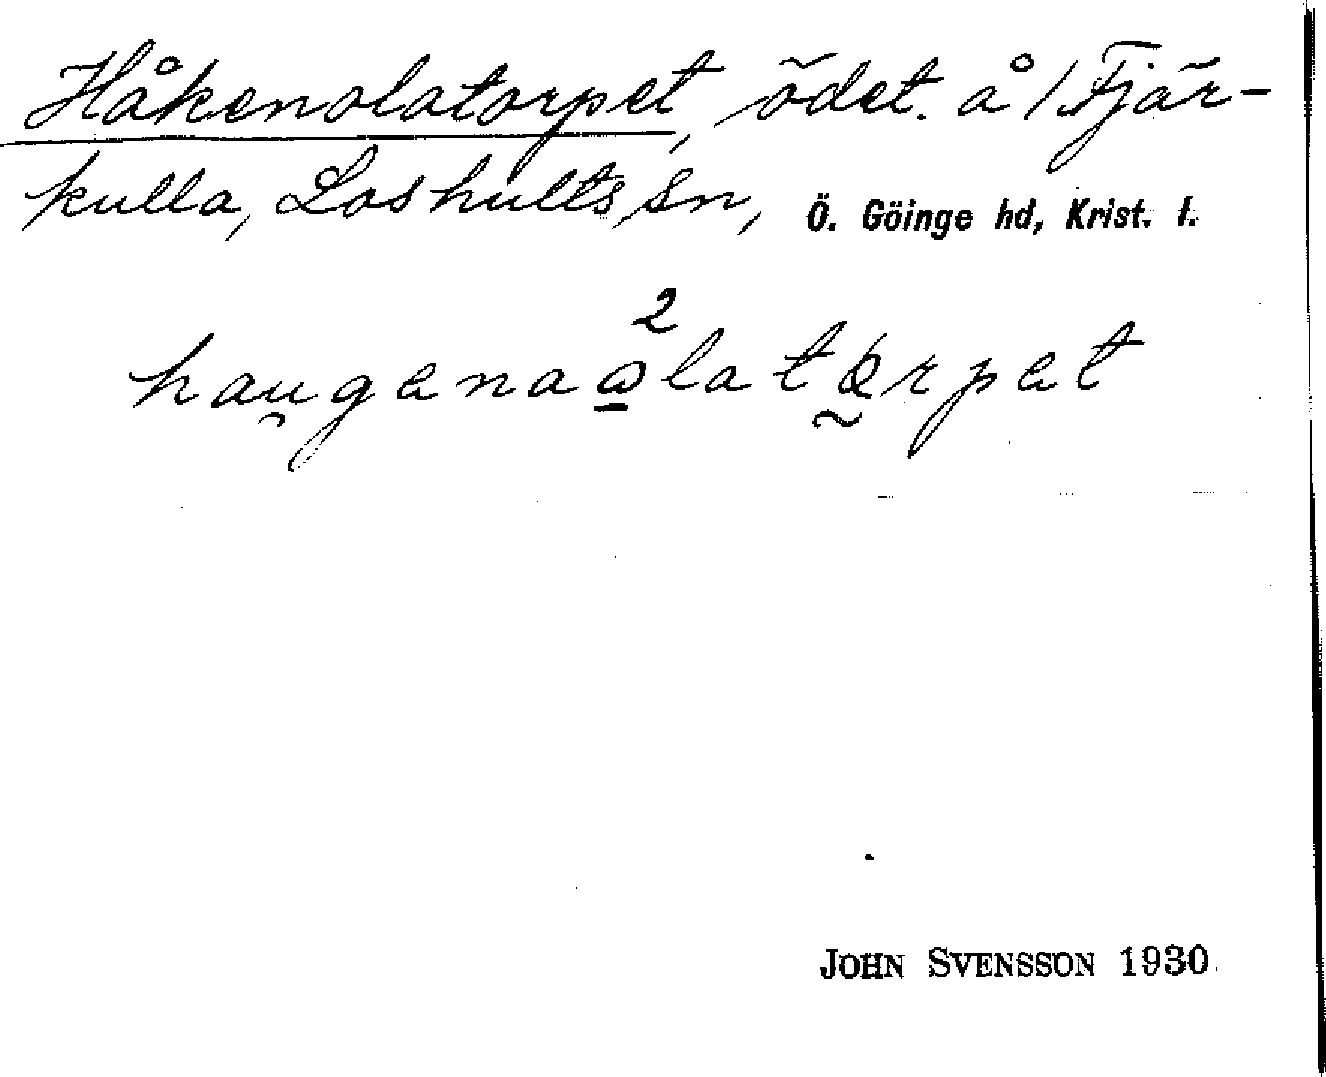 Håkenolatorpet, ödet. å 1 Fjär-
kulla, Loshults sn, Ö. Göinge hd, Krist. l.
2
haugenaωlatɷrpet
JOHN SVENSSON 1930